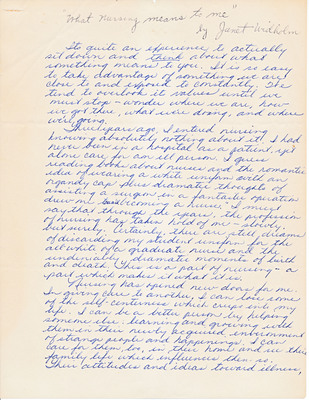 "What Nursing means to me"
by Janet Wilholm
Its quite an experience to actually
sit down and think about what
something means to you. It is so easy
to take advantage of something we are
close to and exposed to constantly. We
tend to overlook its values until we
must stop - wonder where we are, how
we got there, what we're doing, and where
we're going.
Three years ago, I entered nursing
knowing absolutely nothing about it! I had
never been in a hospital as a patient, yet
alone care for an ill person. I guess
reading books about nurses and the romantic
idea of wearing a white uniform with an
organdy cap plus dramatic thoughts of
assisting a surgeon in a fantastic operation
drew me to becoming a nurse. I must
say that through the years, the profession
of nursing has taken hold of me - slowly,
but surely. Certainly, there are still dreams
of discarding my student uniform for the
all white of a graduate nurse and the
undeniably dramatic moments of birth
and death. This is a part of nursing - a
part which makes it what it is.
Nursing has opened new doors for me.
In giving care to another, I can lose some
of the self-centeredness which creeps into my
life. I can be a better person by helping
someone else; learning and growing with
them in their newly acquired environment
of strange people and happenings. I can
care for them, too, in their home and see their
family life which influences them so.
Their attitudes and ideas toward illness,